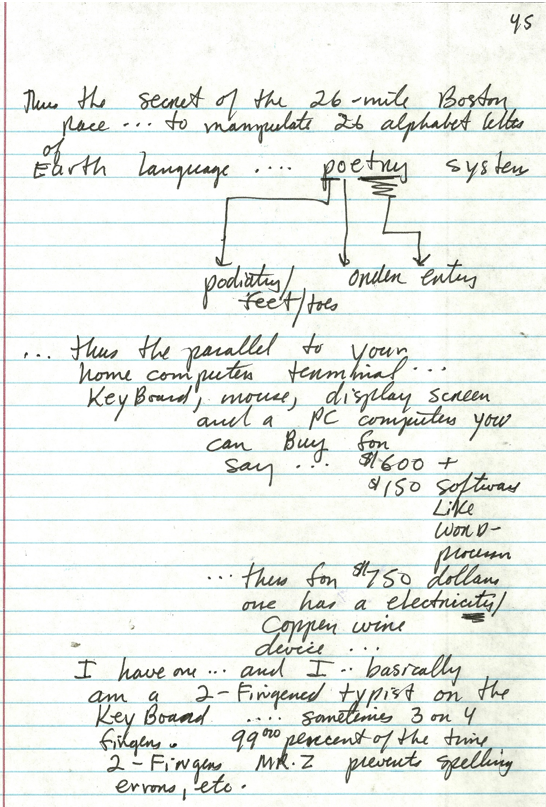 45
Thus the secret of the 26-mile Boston
race ... to manipulate 26 alphabet letters
of
Earth language .... poetry system
podiatry/ order entry
feet/toes
... thus the parallel to your
home computer terminal ...
KeyBoard, mouse, display screen
and a PC computer you
can Buy for
say ... $600 +
$150 software
Like
WORD-
processor
... thus for $750 dollars
one has a electricity/
Copper wire
device ...
I have one ... and I .. basically
am a 2-Fingered typist on the
KeyBoard .... sometimes 3 or 4
fingers. 99% percent of the time
2-Fingers MR. Z prevents spelling
errors, etc.